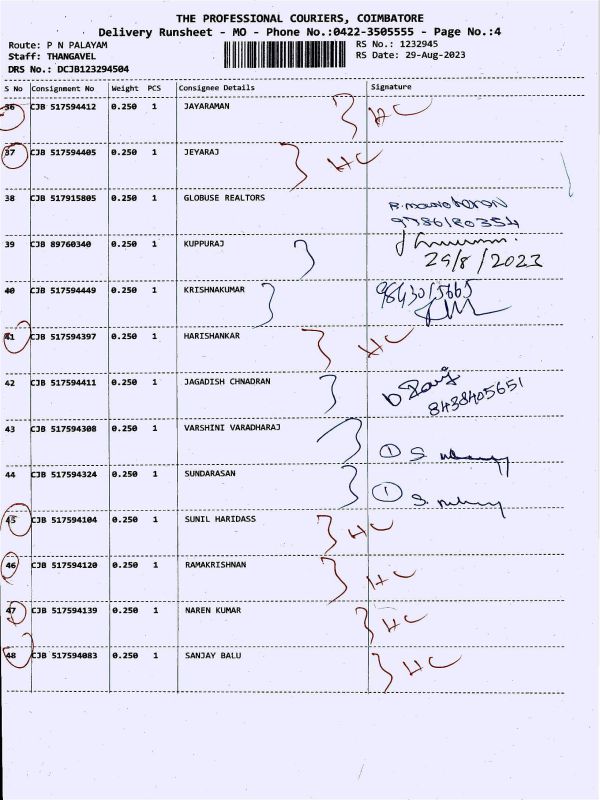 THE PROFESSIONAL COURIERS, COIMBATORE
Delivery Runsheet - MO - Phone No.:0422-3505555 - Page No.:4
Route: P N PALAYAM
RS No.: 1232945
Staff: THANGAVEL
RS Date: 29-Aug-2023
DRS No.: DCJB123294504
S No Consignment No Weight PCS Consignee Details Signature
36 CJB 517594412 0.250 1 JAYARAMAN HC
37 CJB 517594405 0.250 1 JEYARAJ HC
38 CJB 517915805 0.250 1 GLOBUSE REALTORS
9786180354
39 CJB 89760340 0.250 1 KUPPURAJ
29/8/2023
40 CJB 517594449 0.250 1 KRISHNAKUMAR 9843015665
41 CJB 517594397 0.250 1 HARISHANKAR HC
42 CJB 517594411 0.250 1 JAGADISH CHNADRAN
8438405651
43 CJB 517594308 0.250 1 VARSHINI VARADHARAJ 1 S.
44 CJB 517594324 0.250 1 SUNDARASAN 1 S.
45 CJB 517594104 0.250 1 SUNIL HARIDASS HC
46 CJB 517594120 0.250 1 RAMAKRISHNAN HC
47 CJB 517594139 0.250 1 NAREN KUMAR HC
48 CJB 517594083 0.250 1 SANJAY BALU HC